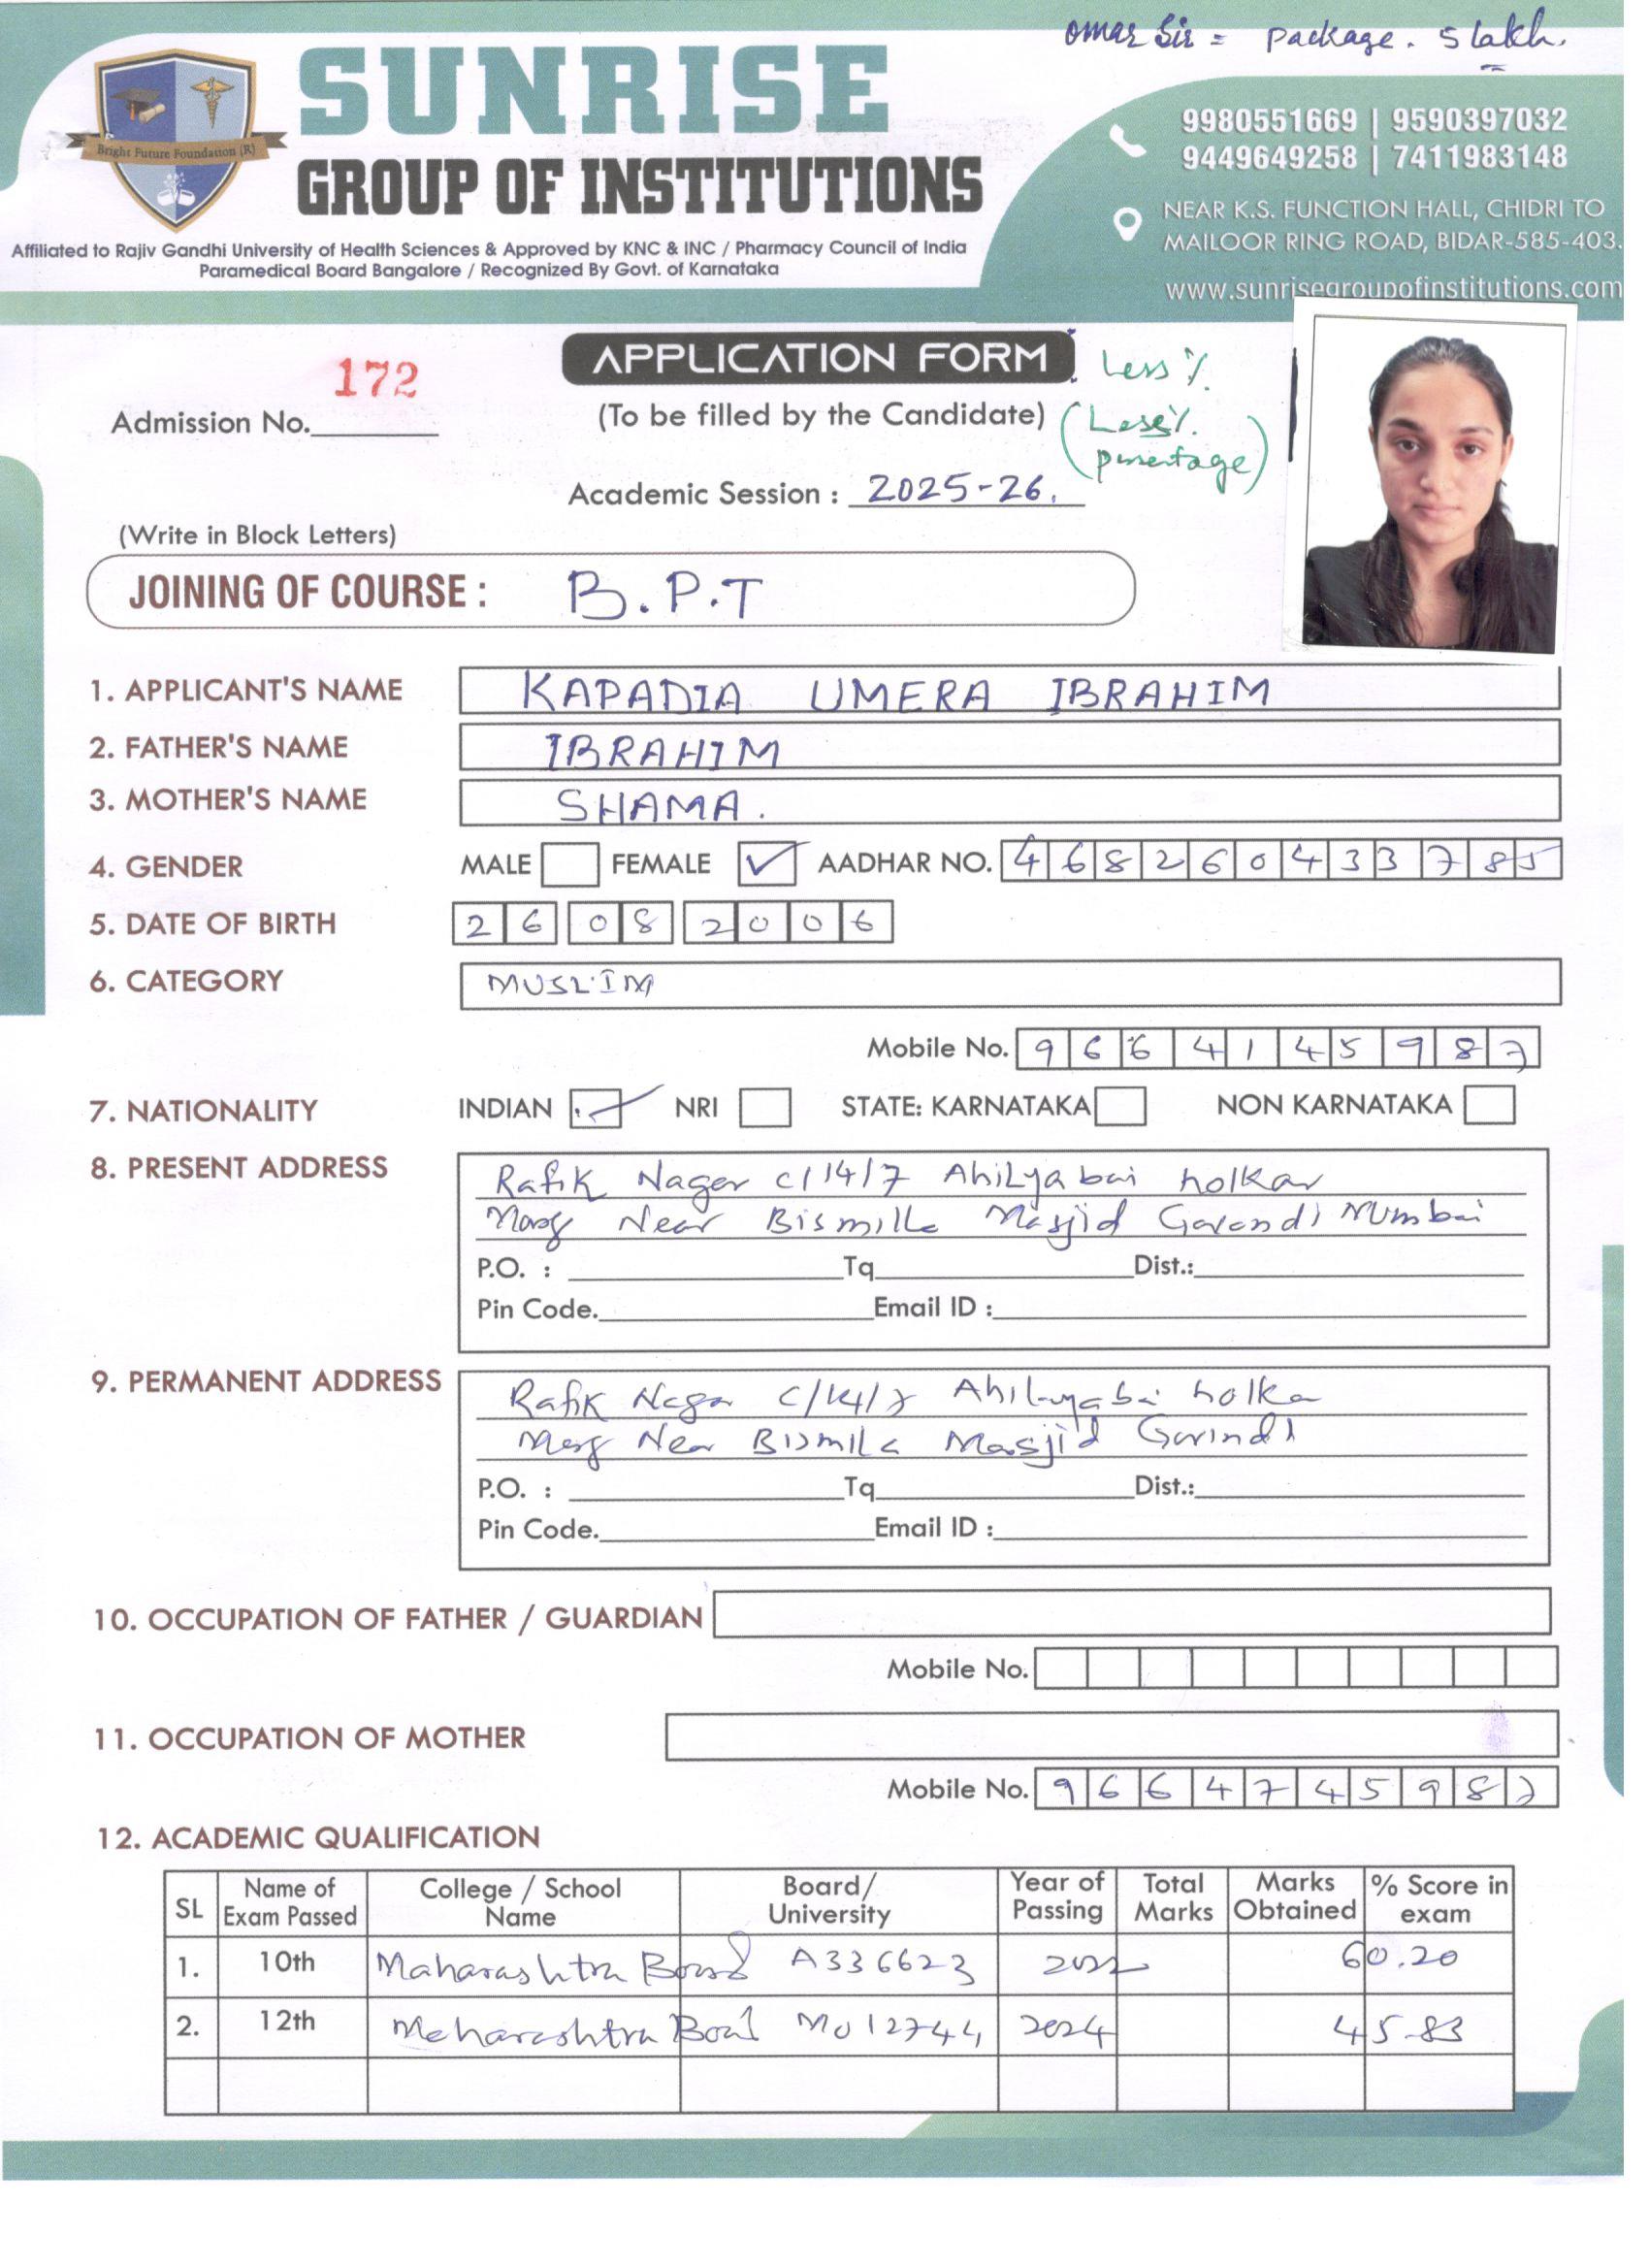 omar Sir = package. 5 lakh.
Bright Future Foundation (R)
SUNRISE
GROUP OF INSTITUTIONS
Affiliated to Rajiv Gandhi University of Health Sciences & Approved by KNC & INC / Pharmacy Council of India
Paramedical Board Bangalore / Recognized By Govt. of Karnataka
9980551669 | 9590397032
9449649258 | 7411983148
NEAR K.S. FUNCTION HALL, CHIDRI TO
MAILOOR RING ROAD, BIDAR-585-403.
www.sunrisegroupofinstitutions.com
APPLICATION FORM
Less %
172
Admission No.
(To be filled by the Candidate)
(Less %
percentage)
Academic Session : 2025-26.
(Write in Block Letters)
JOINING OF COURSE : B.P.T
1. APPLICANT'S NAME KAPADIA UMERA IBRAHIM
2. FATHER'S NAME IBRAHIM
3. MOTHER'S NAME SHAMA.
4. GENDER MALE FEMALE ✓ AADHAR NO. 468260433785
5. DATE OF BIRTH 26 08 2006
6. CATEGORY MUSLIM
Mobile No. 9664145987
7. NATIONALITY INDIAN ✓ NRI STATE: KARNATAKA NON KARNATAKA
8. PRESENT ADDRESS Rafik Nager c/14/7 Ahilyabai holkar
Marg Near Bismilla Masjid Govandi Mumbai
P.O. : Tq Dist.:
Pin Code. Email ID :
9. PERMANENT ADDRESS Rafik Nagar c/14/7 Ahilyabai holka
Marg Near Bismila Masjid Govindi
P.O. : Tq Dist.:
Pin Code. Email ID :
10. OCCUPATION OF FATHER / GUARDIAN
Mobile No.
11. OCCUPATION OF MOTHER
Mobile No. 9664745987
12. ACADEMIC QUALIFICATION
SL Name of Exam Passed College / School Name Board/ University Year of Passing Total Marks Marks Obtained % Score in exam
1. 10th Maharashtra Board A336623 2022 60.20
2. 12th Maharashtra Board M012744 2024 45.83